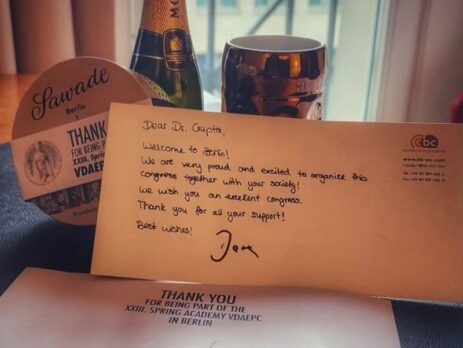 Sawade
Berlin
THANK
FOR BEING PAR
XXIII. Spring
VDAEPC
MO
Dear Dr. Gupta,
Welcome to Berlin!
We are very proud and excited to organize this
congress together with your society!
We wish you an excellent congress.
Thank you for all your support!
Best wishes!
cbc
THANK YOU
FOR BEING PART OF THE
XXIII. SPRING ACADEMY VDAEPC
IN BERLIN